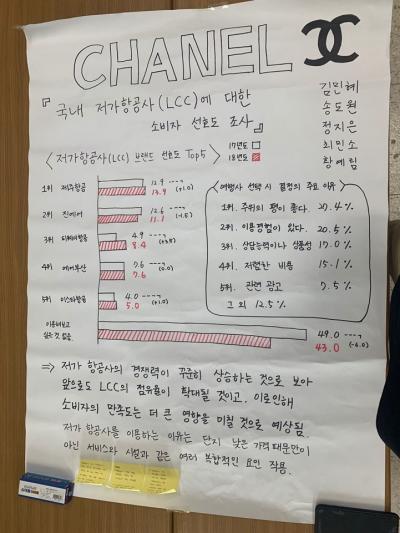 CHANEL
『국내 저가항공사(LCC)에 대한
소비자 선호도 조사』
김민혜
송도원
정지은
최민소
황예림
<저가항공사(LCC) 브랜드 선호도 Top5>
17년도
18년도
1위 제주항공 12.9 (+1.0)
13.9
2위 진에어 12.6 (-1.5)
11.1
3위 티웨이항공 4.9 (+3.5)
8.4
4위 에어부산 7.6 (0.0)
7.6
5위 이스타항공 4.0 (+1.0)
5.0
이용해보고 싶은 것 없음 49.0 (-6.0)
43.0
여행사 선택 시 결정의 주요 이유
1위. 주위의 평이 좋다. 27.4%
2위. 이용경험이 있다. 20.5%
3위. 상담능력이나 상품성 17.0%
4위. 저렴한 비용 15.1%
5위. 관련 광고 7.5%
그 외 12.5%
⇒ 저가 항공사의 경쟁력이 꾸준히 상승하는 것으로 보아
앞으로도 LCC의 점유율이 확대될 것이고, 이로인해
소비자의 만족도는 더 큰 영향을 미칠 것으로 예상됨.
저가 항공사를 이용하는 이유는 단지 낮은 가격 때문만이
아닌 서비스와 시설과 같은 여러 복합적인 요인 작용.